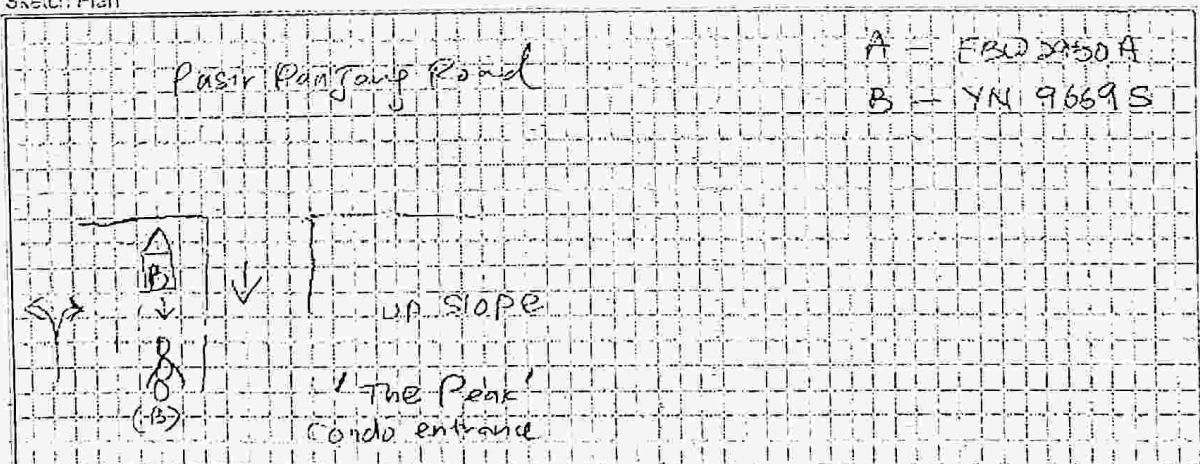 Sketch Plan
A -
Pasir Panjang Road
B - YN 9669S
B
up slope
'The Peak'
(B)
Condo entrance